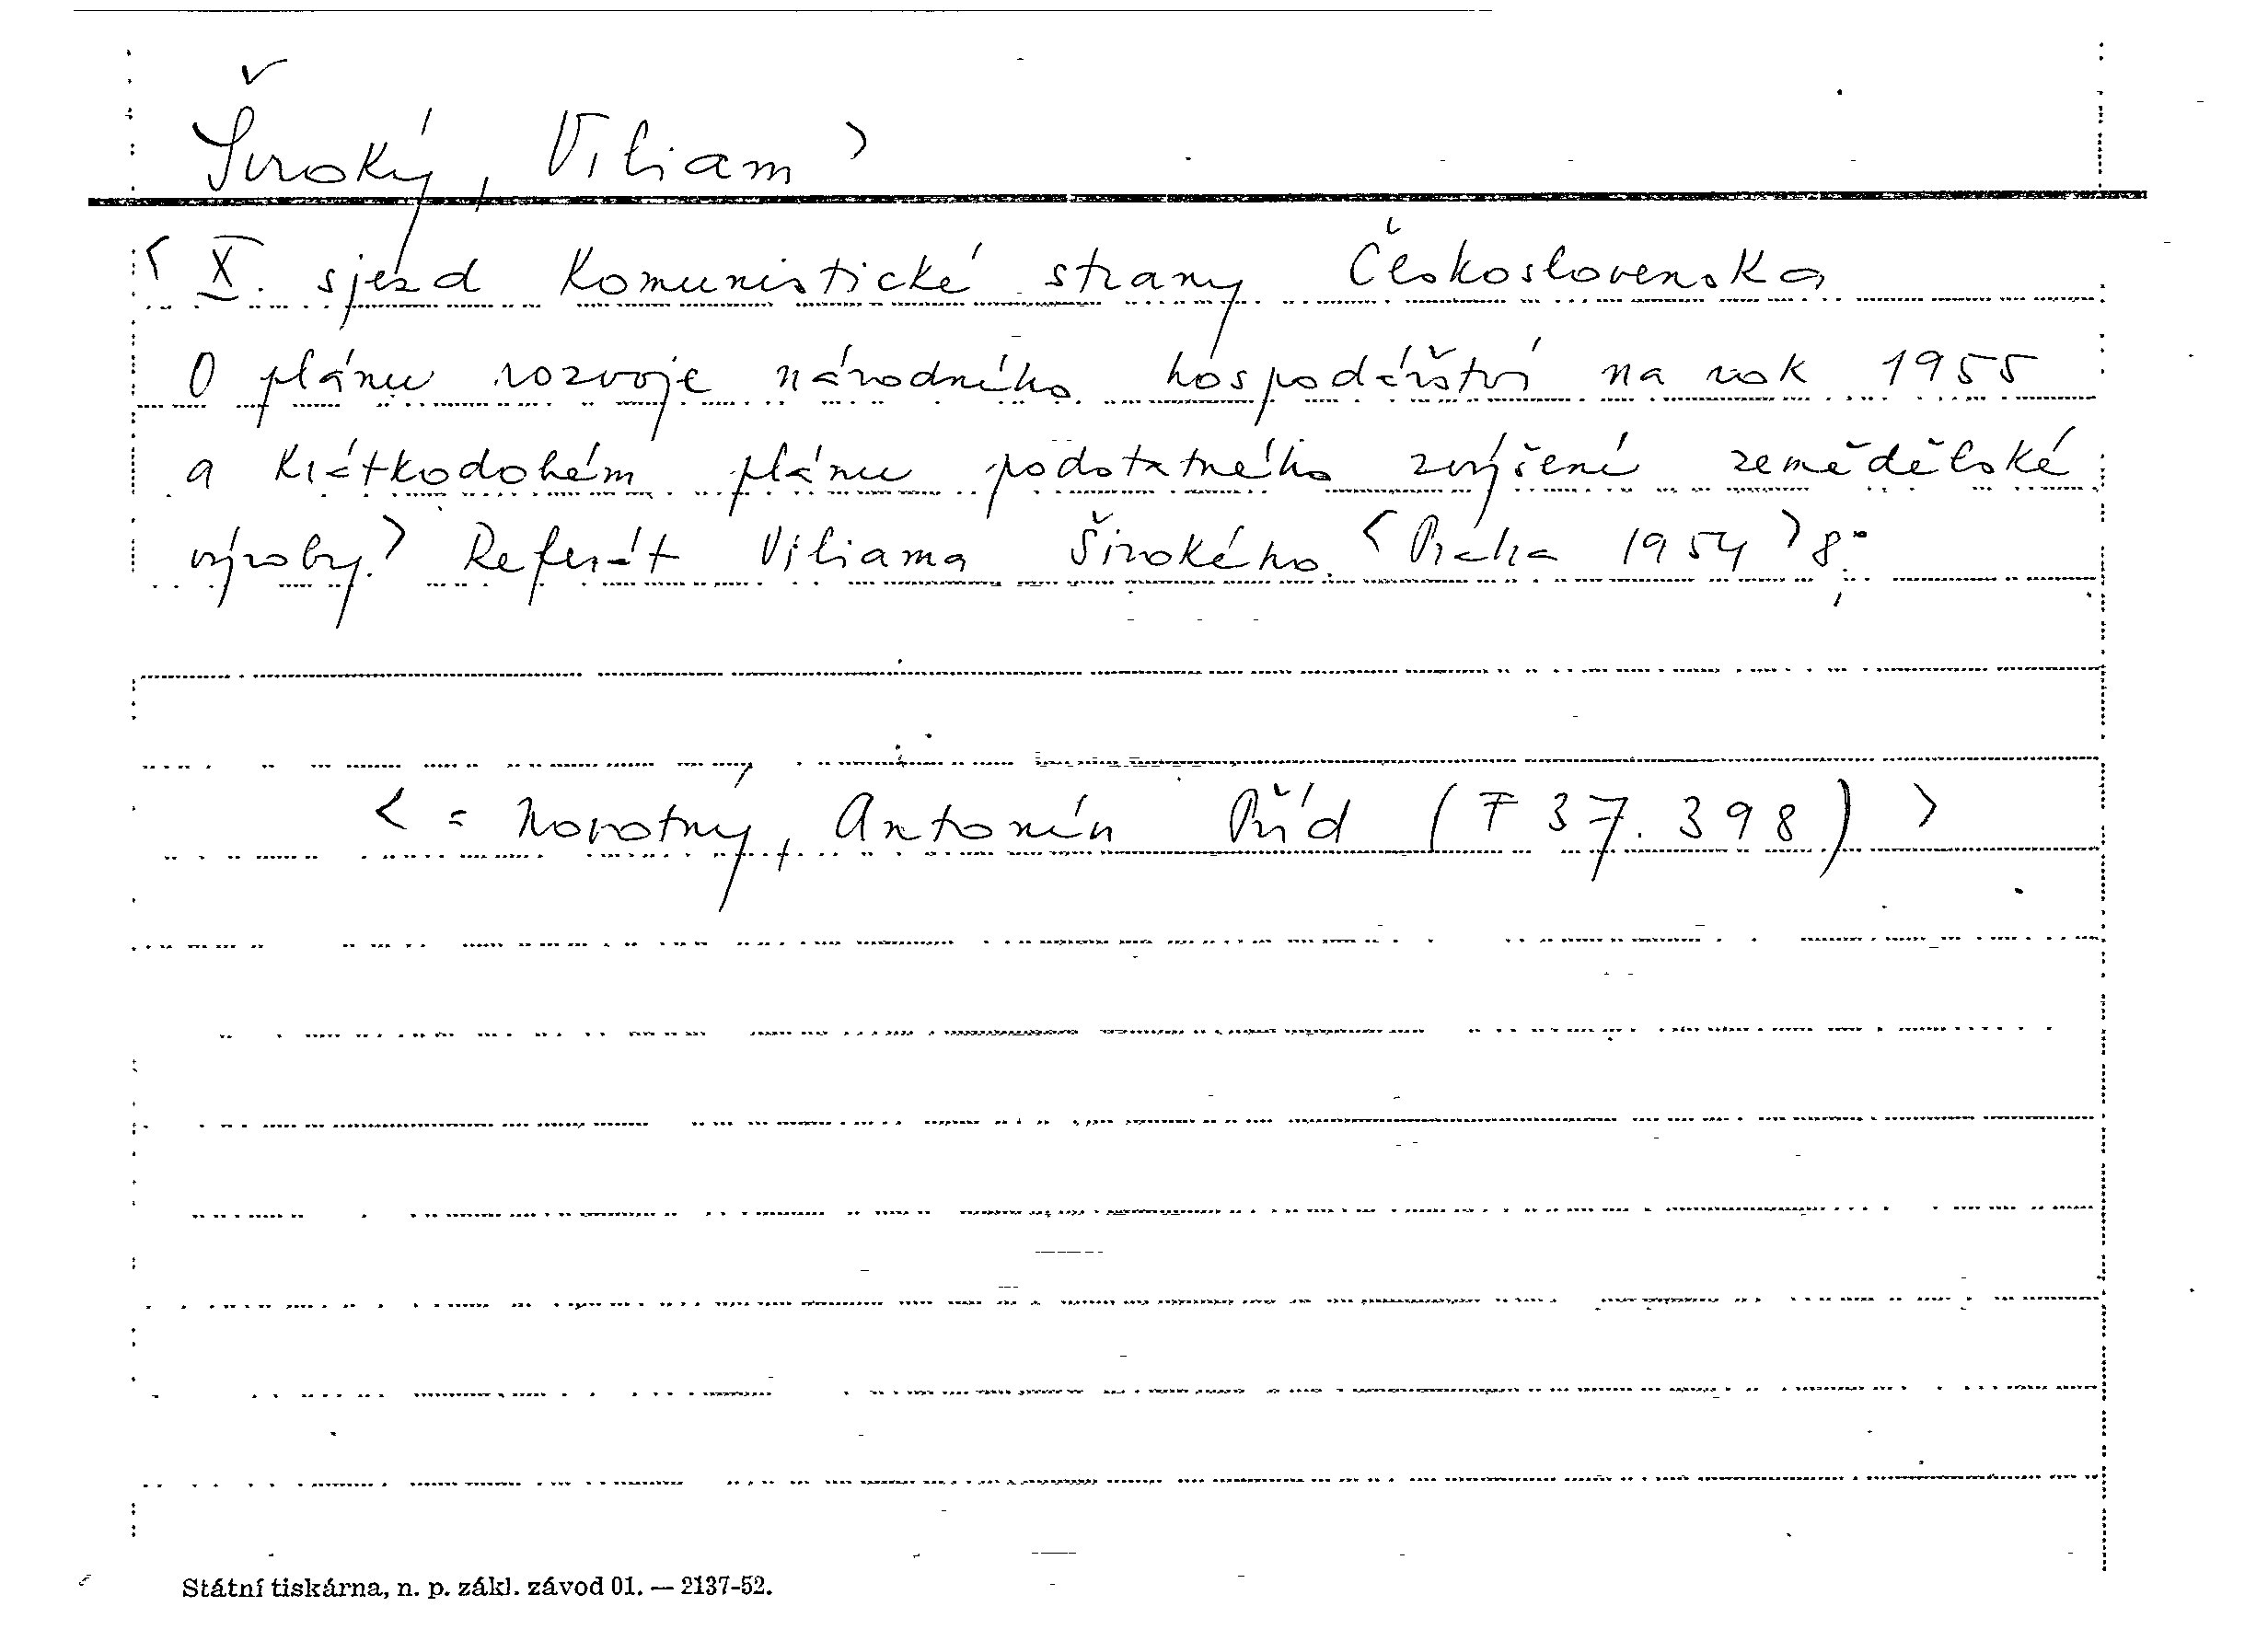 Široký, Viliam >
< X. sjezd Komunistické strany Československa
O plánu rozvoje národního hospodářství na rok 1955
a krátkodobém plánu podstatného zvýšení zemědělské
výroby.> Referát Viliama Širokého. < Praha 1954 > 8°;
< = Novotný, Antonín Příd (F 37.398) >
Státní tiskárna, n. p. zákl. závod 01. — 2137-52.